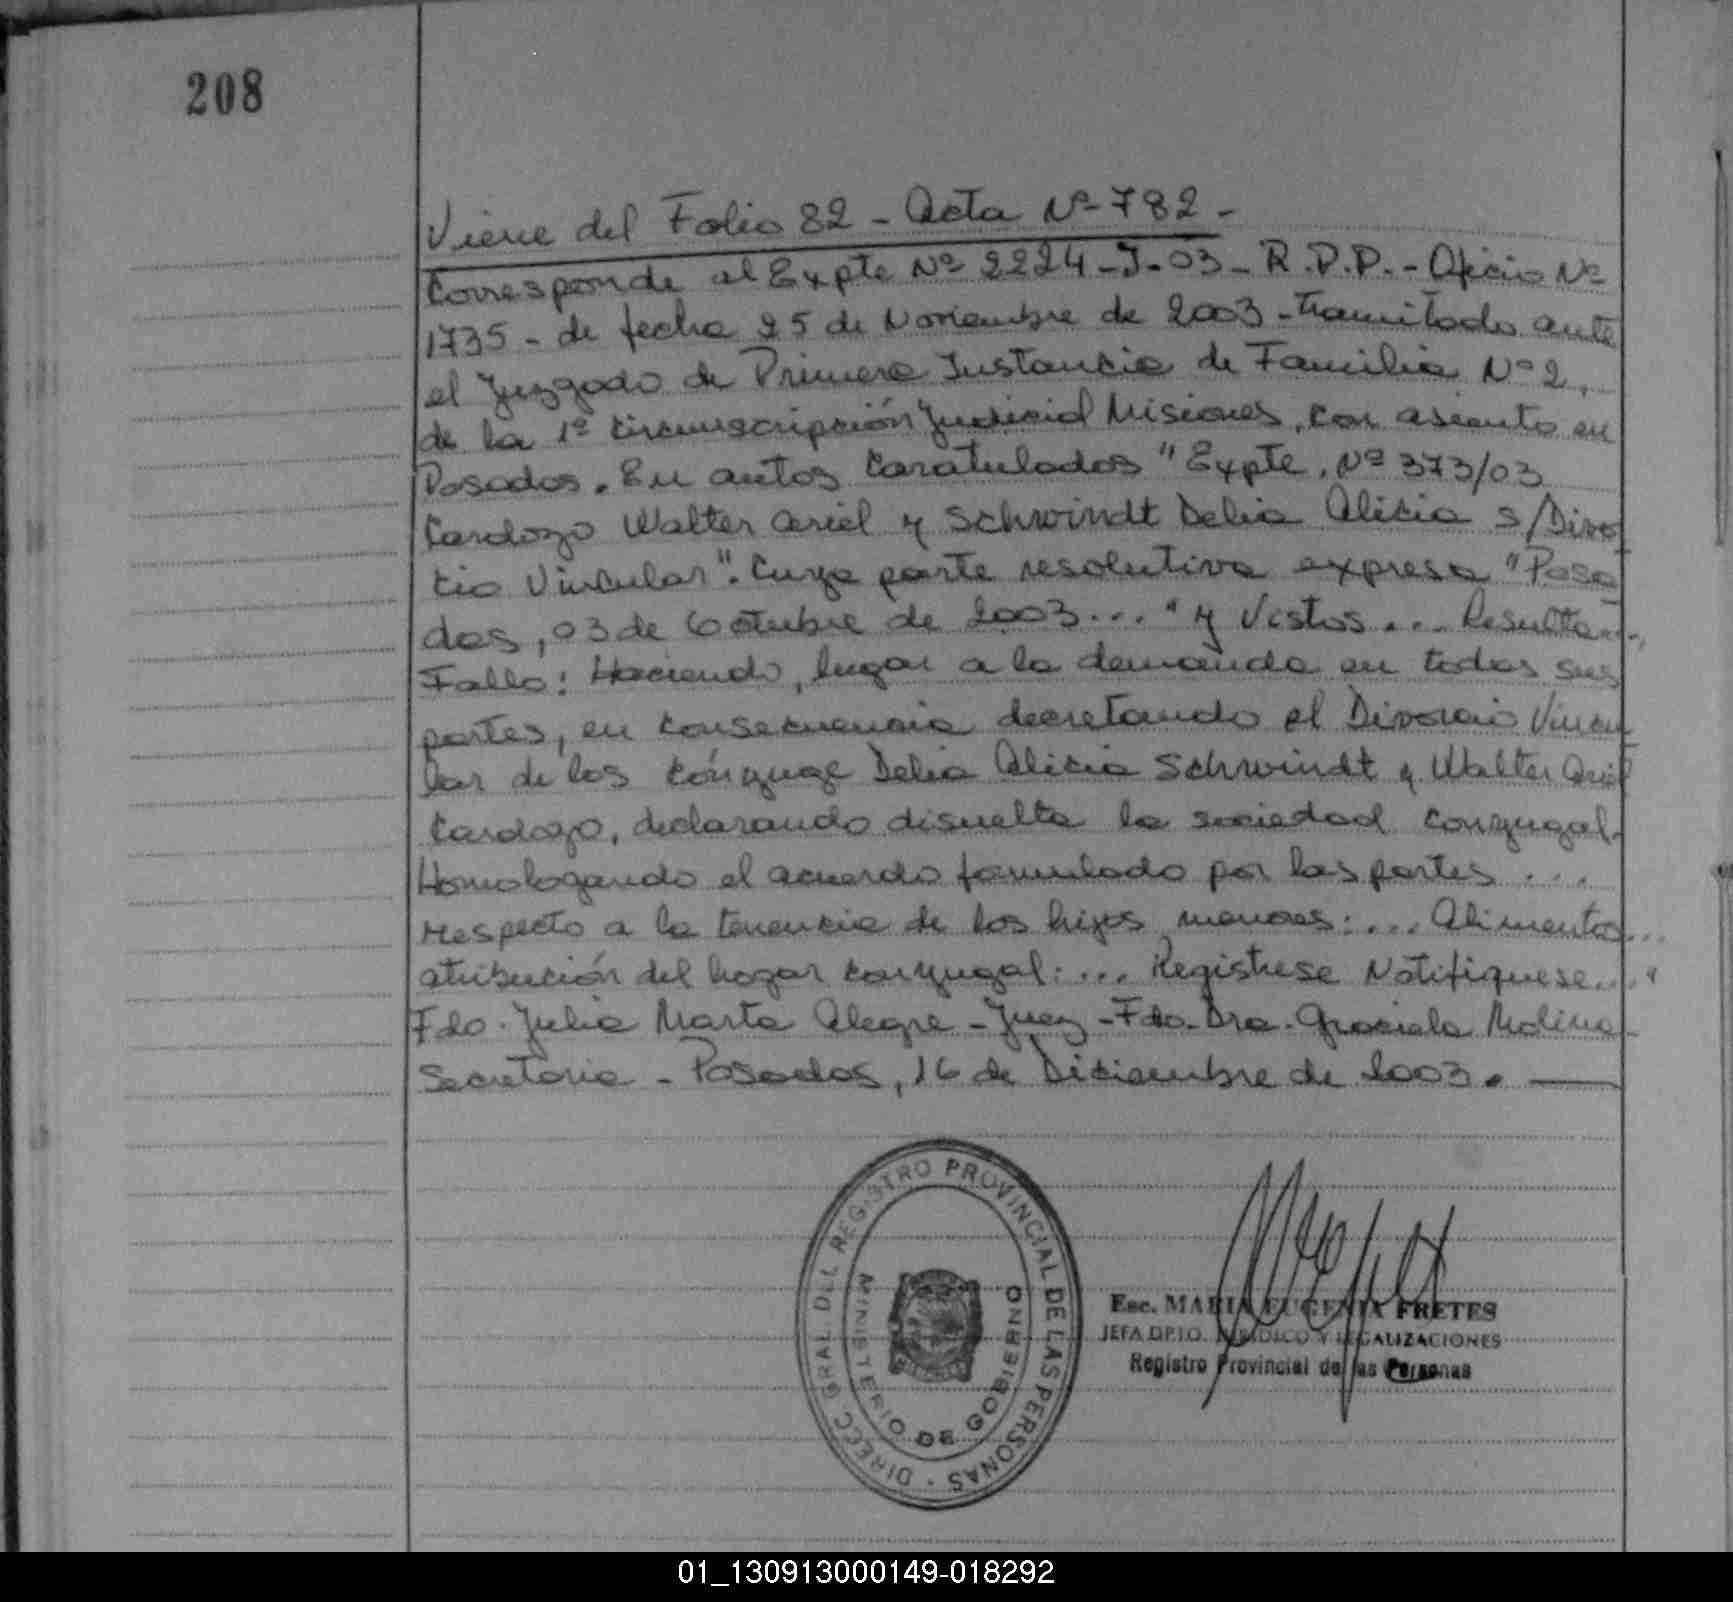 208
Viene del Folio 82 - Acta Nº 782 -
Corresponde al Expte Nº 2224-J-03- R.P.P. - Oficio Nº
1735 - de fecha 25 de Noviembre de 2003 - tramitado ante
el Juzgado de Primera Instancia de Familia Nº 2,
de la 1º Circunscripción Judicial Misiones, con asiento en
Posadas. En autos Caratulados "Expte. Nº 373/03
Cardozo Walter Ariel y Schwindt Delia Alicia s/Divor
cio Vincular". Cuya parte resolutiva expresa "Posa
das, 03 de Octubre de 2003... "y Vistos... Resulta...
Fallo: Haciendo, lugar a la demanda en todas sus
partes, en consecuencia decretando el Divorcio Vincu
lar de los cónyuge Delia Alicia Schwindt y Walter Ariel
Cardozo, declarando disuelta la sociedad conyugal-
Homologando el acuerdo formulado por las partes ...
respecto a la tenencia de los hijos menores: ... Alimentos...
atribución del hogar conyugal: ... Registrese Notifiquese...."
Fdo. Julia Marta Alegre - Juez - Fdo. Dra. Graciela Molina-
Secretaria - Posadas, 16 de Diciembre de 2003. —
DIRECC GRAL. DEL REGISTRO PROVINCIAL DE LAS PERSONAS -
MINISTERIO DE GOBIERNO
Esc. MARIA EUGENIA FRETES
JEFA DPTO. JURIDICO Y LEGALIZACIONES
Registro Provincial de las Personas
01_130913000149-018292